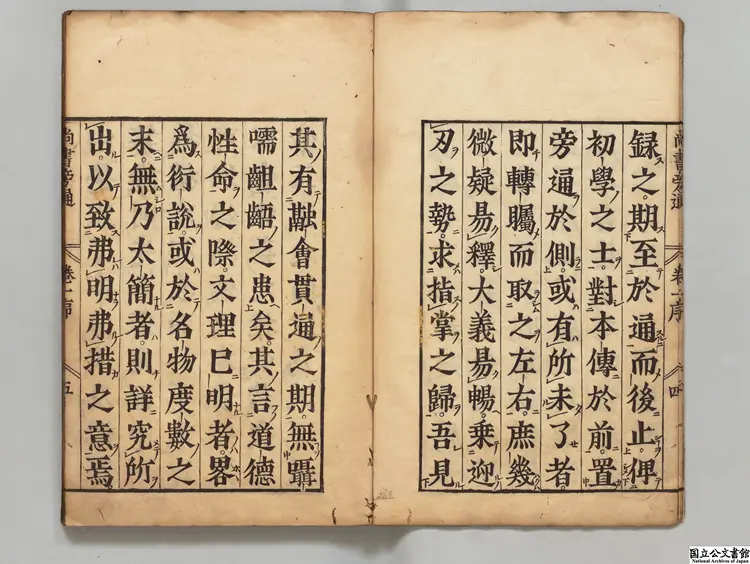 錄之。期至於通而後止。俾
初學之士。對本傳於前。置
旁通於側。或有所未了者。
即轉矚而取之左右。庶幾
微疑易釋。大義易暢。乘迎
刃之勢。求指掌之歸。吾見
尚書旁通 卷一序 四
其有融會貫通之期。無躡
嚅齟齬之患矣。其言道德
性命之際。文理已明者。畧
爲衍說。或於名物度數之
末。無乃太簡者。則詳究所
出。以致弗明弗措之意焉
尚書旁通 卷一序 五
国立公文書館
National Archives of Japan